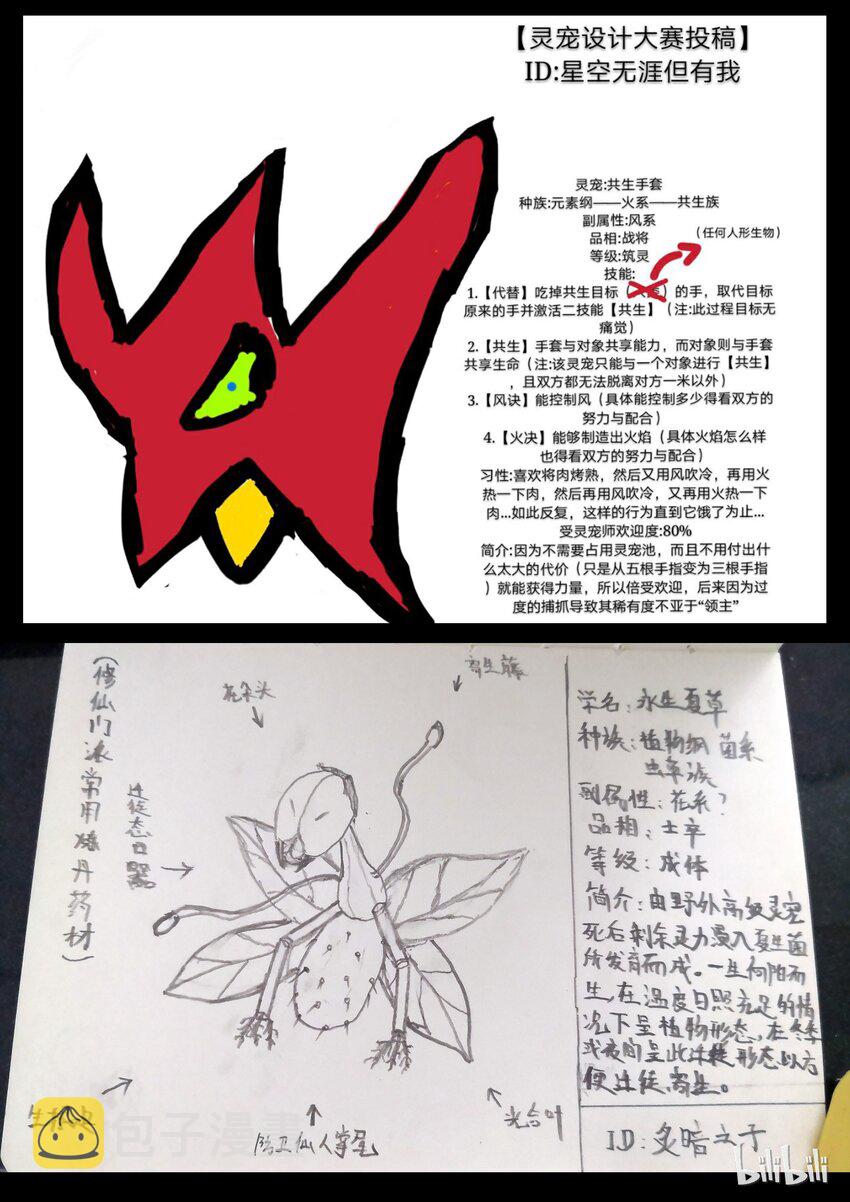 【灵宠设计大赛投稿】
ID:星空无涯但有我
灵宠:共生手套
种族:元素纲——火系——共生族
副属性:风系
品相:战将
(任何人形生物)
等级:筑灵
技能:
1.【代替】吃掉共生目标( )的手，取代目标
原来的手并激活二技能【共生】(注:此过程目标无
痛觉)
2.【共生】手套与对象共享能力，而对象则与手套
共享生命(注:该灵宠只能与一个对象进行【共生】
，且双方都无法脱离对方一米以外)
3.【风诀】能控制风(具体能控制多少得看双方的
努力与配合)
4.【火决】能够制造出火焰(具体火焰怎么样
也得看双方的努力与配合)
习性:喜欢将肉烤熟，然后又用风吹冷，再用火
热一下肉，然后再用风吹冷，又再用火热一下
肉...如此反复，这样的行为直到它饿了为止...
受灵宠师欢迎度:80%
简介:因为不需要占用灵宠池，而且不用付出什
么太大的代价(只是从五根手指变为三根手指
)就能获得力量，所以倍受欢迎，后来因为过
度的捕抓导致其稀有度不亚于“领主”
(修仙门派常用炼丹药材)
花朵头
寄生藤
迁徙态口器
光合叶
防卫仙人掌尾
学名:永生夏草
种族:植物纲 菌系
虫草族
副属性:花系?
品相:士卒
等级:成体
简介:由野外高级灵宠
死后剩余灵力浸入夏生菌
所发育而成。一生向阳而
生,在温度日照充足的情
况下呈植物形态,在冬季
或夜间呈此迁徙形态以方
便迁徙,寄生。
ID:炙暗之子
包子漫畫
bilibili